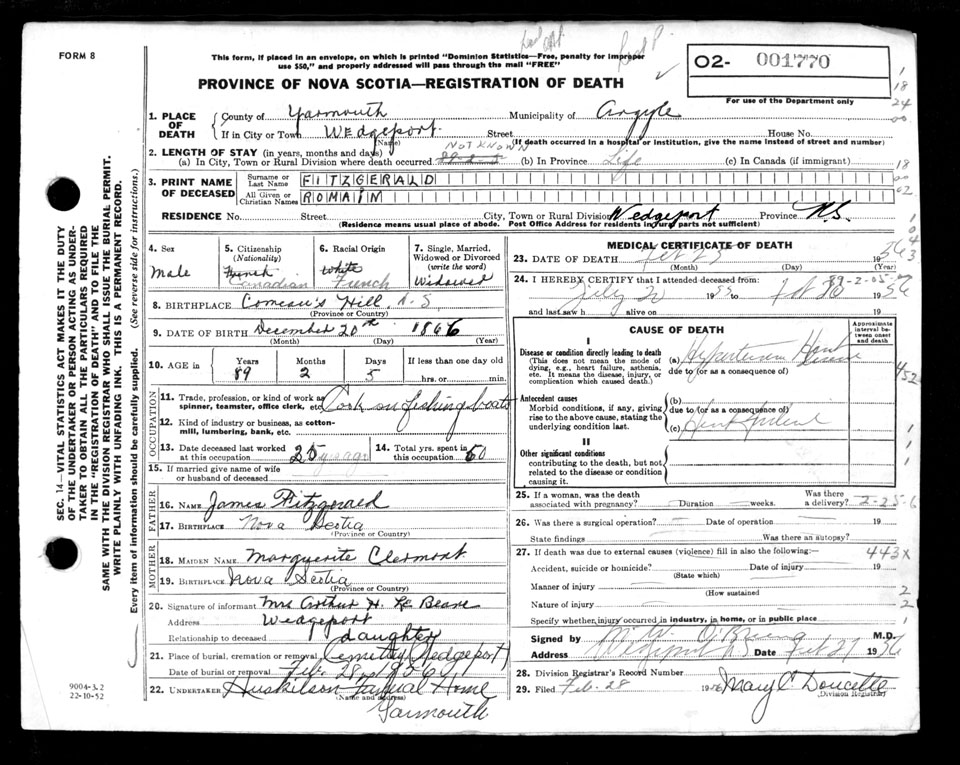 FORM 8
This form, if placed in an envelope, on which is printed "Dominion Statistics—Free, penalty for improper
use $50," and properly addressed will pass through the mail "FREE"
PROVINCE OF NOVA SCOTIA—REGISTRATION OF DEATH
02- 001770
For use of the Department only
1. PLACE OF DEATH
County of Yarmouth Municipality of Argyle
If in City or Town Wedgeport Street House No.
(Name) (If death occurred in a hospital or institution, give the name instead of street and number)
2. LENGTH OF STAY (in years, months and days) NOT KNOWN
(a) In City, Town or Rural Division where death occurred (b) In Province Life (c) In Canada (if immigrant)
3. PRINT NAME OF DECEASED
Surname or Last Name FITZGERALD
All Given or Christian Names ROMAIN
RESIDENCE No. Street City, Town or Rural Division Wedgeport Province N.S.
(Residence means usual place of abode. Post Office Address for residents in rural parts not sufficient)
4. Sex
Male
5. Citizenship (Nationality)
French
Canadian
6. Racial Origin
White
French
7. Single, Married, Widowed or Divorced (write the word)
Widowed
8. BIRTHPLACE Comeau's Hill N-S
(Province or Country)
9. DATE OF BIRTH December 20th 1866
(Month) (Day) (Year)
10. AGE in
Years Months Days If less than one day old
89 2 5 hrs. or min.
OCCUPATION
11. Trade, profession, or kind of work as spinner, teamster, office clerk, etc. Cook on fishing boats
12. Kind of industry or business, as cotton-mill, lumbering, bank, etc.
13. Date deceased last worked at this occupation 25 years ago
14. Total yrs. spent in this occupation 50
15. If married give name of wife or husband of deceased
FATHER
16. NAME James Fitzgerald
17. BIRTHPLACE Nova Scotia
(Province or Country)
MOTHER
18. MAIDEN NAME Marguerite Clermont
19. BIRTHPLACE Nova Scotia
(Province or Country)
20. Signature of informant Mrs Arthur H. Le Beane
Address Wedgeport
Relationship to deceased daughter
21. Place of burial, cremation or removal Cemetery Wedgeport
Date of burial or removal Feb. 28 1956
22. UNDERTAKER Huskilson Funeral Home
(Name and address)
Yarmouth
MEDICAL CERTIFICATE OF DEATH
23. DATE OF DEATH Feb 25 1956
(Month) (Day) (Year)
24. I HEREBY CERTIFY that I attended deceased from: 89-2-05
July 1955 to Feb 1956
and last saw h alive on 19
CAUSE OF DEATH
Approximate interval between onset and death
I
Disease or condition directly leading to death
(This does not mean the mode of dying, e.g., heart failure, asthenia, etc. It means the disease, injury, or complication which caused death.)
(a) Hypertension Heart Disease
due to (or as a consequence of)
Antecedent causes
Morbid conditions, if any, giving rise to the above cause, stating the underlying condition last.
(b)
due to (or as a consequence of)
(c) Heart
II
Other significant conditions
contributing to the death, but not related to the disease or condition causing it.
25. If a woman, was the death associated with pregnancy? Duration weeks. Was there a delivery? 2-25-6
26. Was there a surgical operation? Date of operation 19
State findings Was there an autopsy?
27. If death was due to external causes (violence) fill in also the following:— 443X
Accident, suicide or homicide? Date of injury 19
(State which)
Manner of injury
(How sustained)
Nature of injury
Specify whether injury occurred in industry, in home, or in public place
Signed by M.D.
Address Wedgeport NS Date Feb 27 1956
28. Division Registrar's Record Number
29. Filed Feb. 28 1956 Mary C Doucette
(Division Registrar)
SEC. 14—VITAL STATISTICS ACT MAKES IT THE DUTY
OF THE UNDERTAKER OR PERSON ACTING AS UNDER-
TAKER TO OBTAIN ALL THE PARTICULARS REQUIRED
IN THE "REGISTRATION OF DEATH" AND TO FILE THE
SAME WITH THE DIVISION REGISTRAR WHO SHALL ISSUE THE BURIAL PERMIT.
WRITE PLAINLY WITH UNFADING INK. THIS IS A PERMANENT RECORD.
Every item of information should be carefully supplied. (See reverse side for instructions.)
9004-3.2
22-10-52